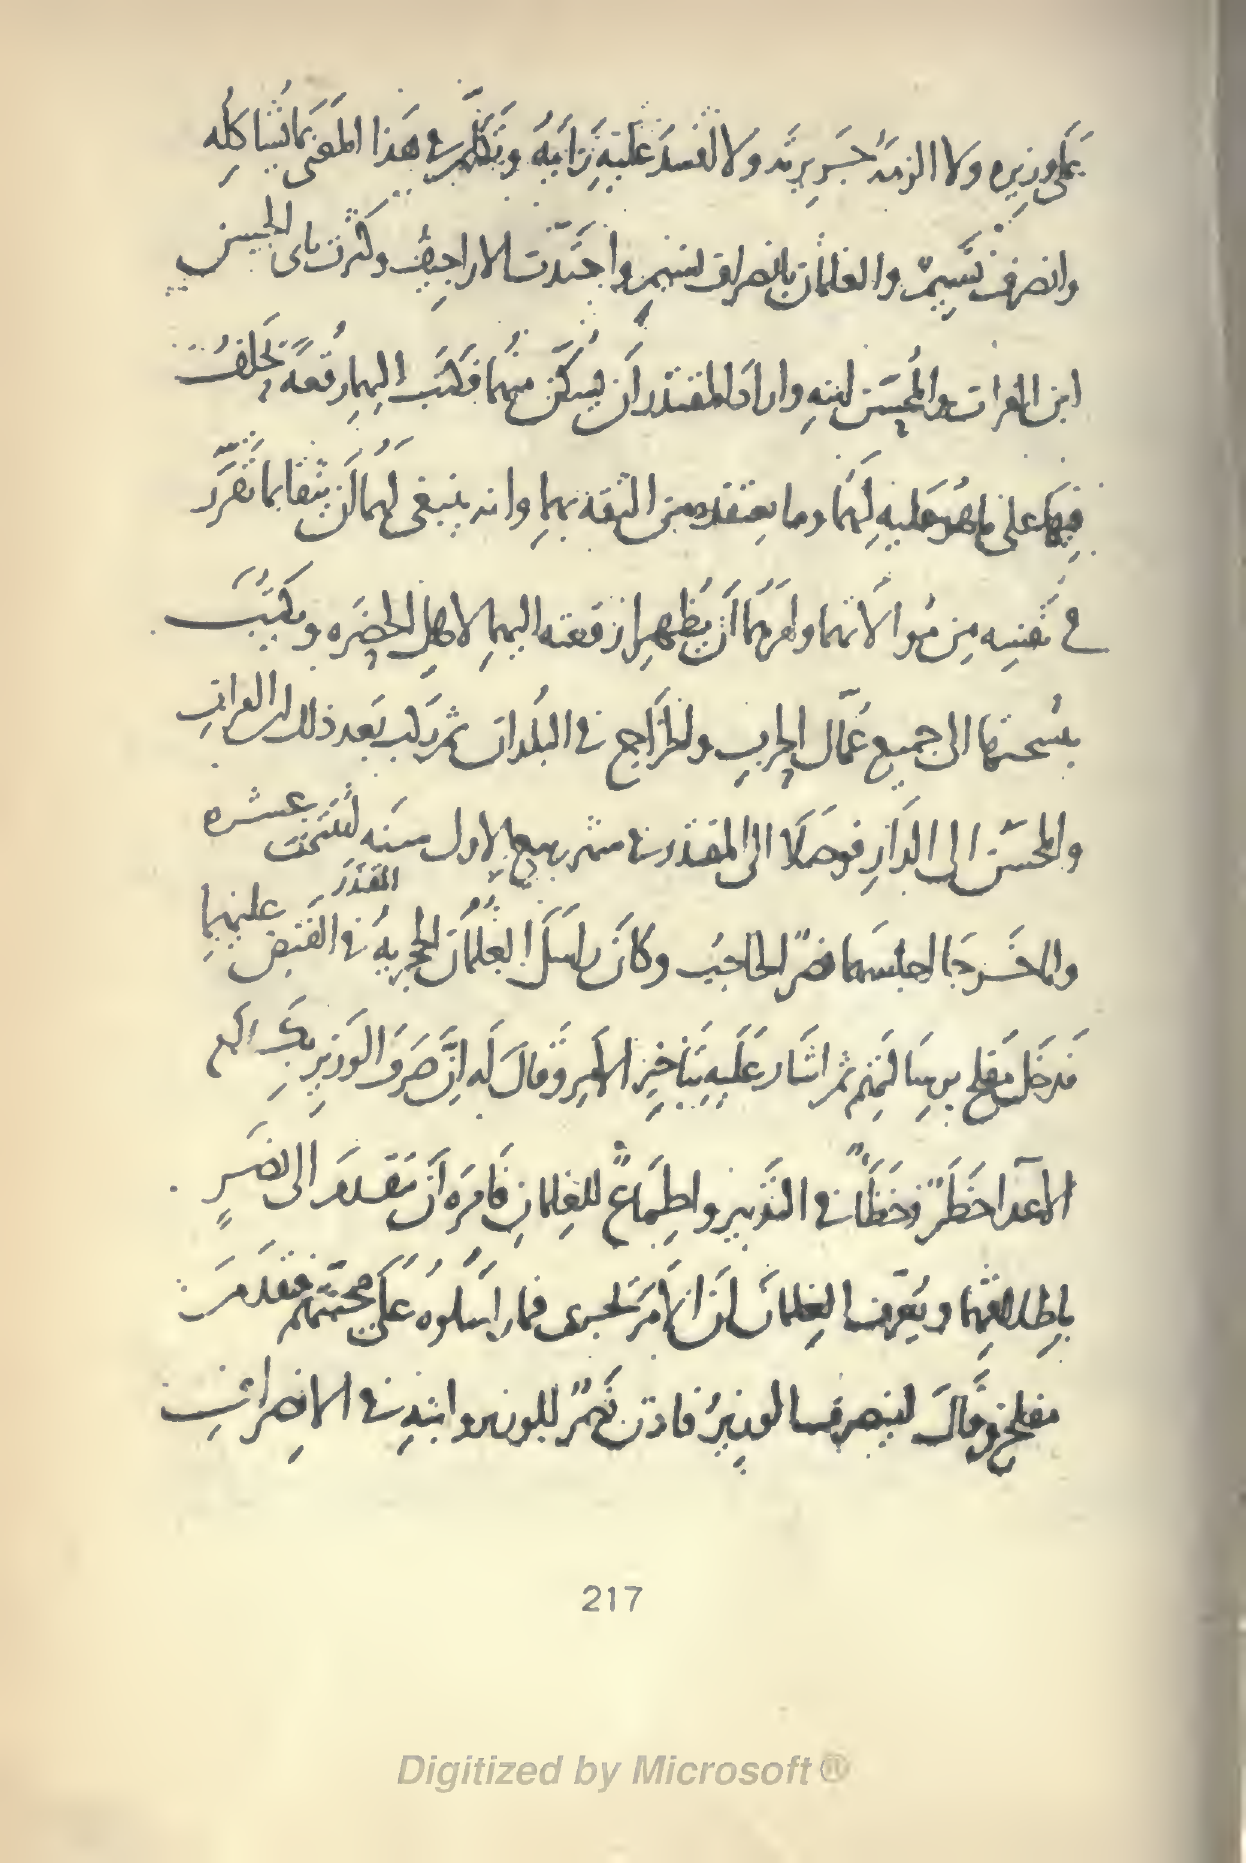 على وزيره ولا الزمه حسر يريد ولا افسد عليه رايه وتكلم في هذا المعنى بما شاكله
وانصرف نسيم والغلمان بانصراف نسيم واجتدت الاراجيف وكثرت بابى الحسن
ابن الفرات والمحسن ابنه واراد المقتدر ان يسكن منهما فكتب اليهما رقعة يحلف
فيها على ما هو عليه لهما وما يعتقده من الثقة بهما وانه ينبغى لهما ان يثقا بما تقرر
في نفسه من موالاتهما وامرهما ان يظهرا رقعته اليهما لاهل الحضره ويكتب
بنسختها الى جميع عمال الحرب والخراج في البلدان ثم ركب بعد ذلك ابن الفرات
والمحسن الى الدار فوصلا الى المقتدر في شهر ربيع الاول سنه اثنتى عشره
ولما خرجا اجلسهما نصر الحاجب وكان راسل الغلمان الحجرية المقتدر في القبض عليهما
فدخل مفلح برسالتهم ثم اشار عليه بتاخير الامر وقال له ان صرف الوزير بكلام
الاعدا خطر وخطأ في التدبير واطماع للغلمان فامره ان يتقدم الى نصر
باطلاقهما ويعرف الغلمان ان الامر يجرى فما راسلوه على محبتهم فتقدم
مفلح وقال لينصرف الوزير فاذن نصر للوزير وابنه في الانصراف
217
Digitized by Microsoft ®